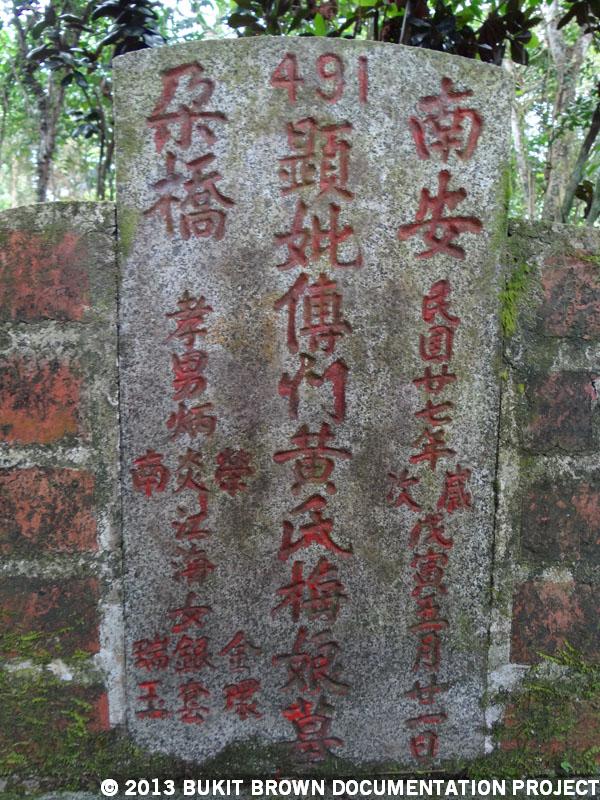 491
南安
民國廿七年歲次戊寅五月廿一日
顯妣傅門黃氏梅娘墓
朶橋
孝男炳
榮
炎
南
江海
女
金環
銀套
瑞玉
© 2013 BUKIT BROWN DOCUMENTATION PROJECT